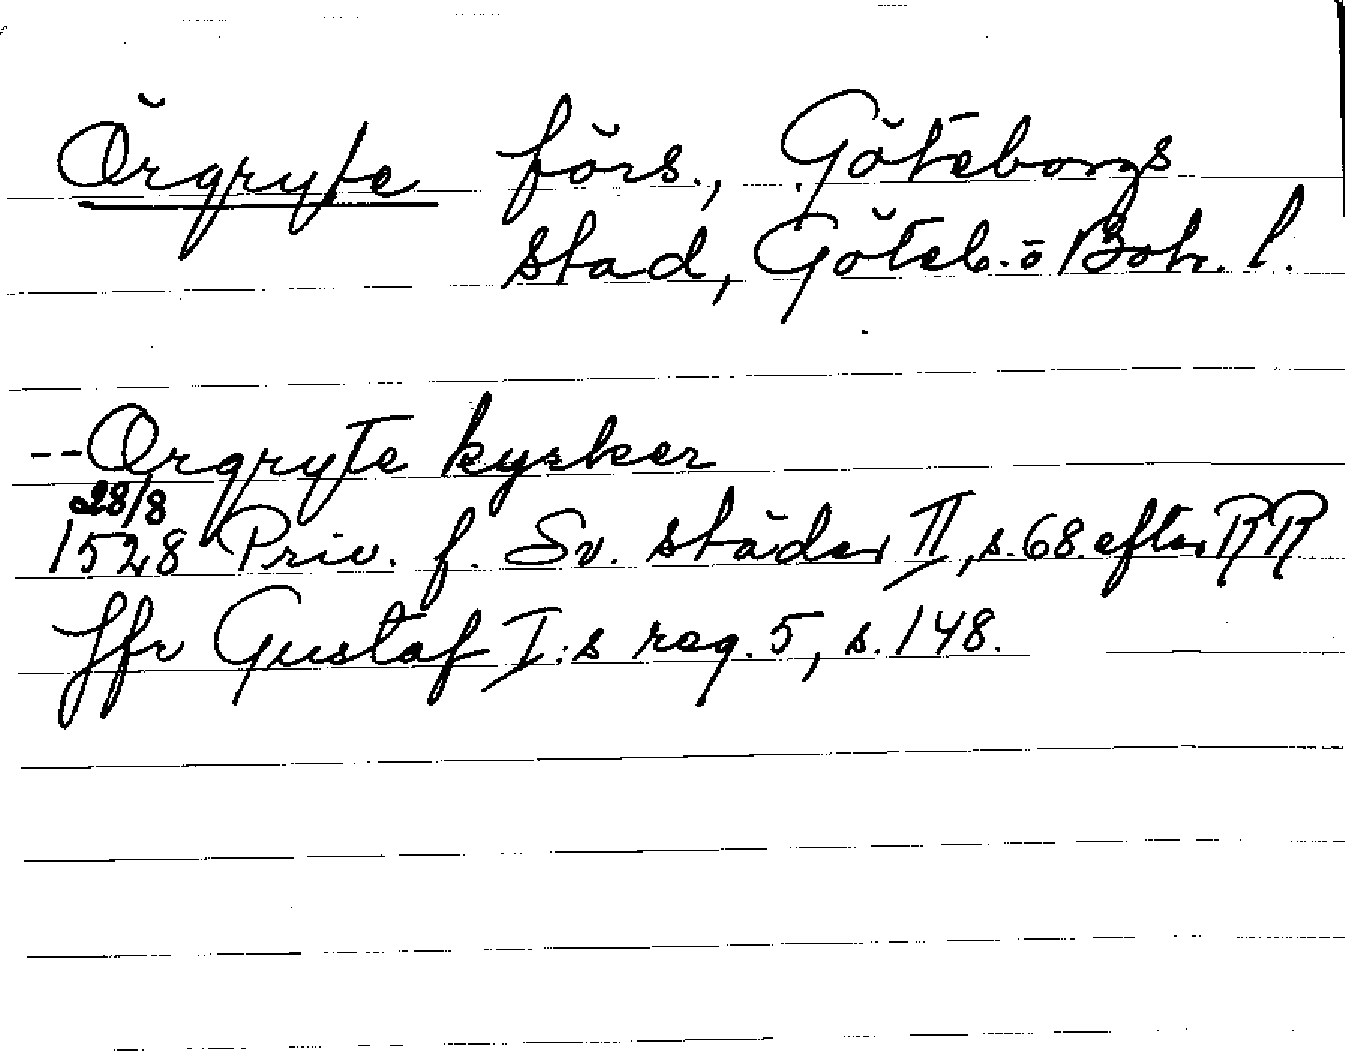 Örgryte förs., Göteborgs
stad, Göteb. o Boh. l.
--Orgryte kyrker
28/8
1528 Priv. f. Sv. städer II, s. 68 efter RR
Jfr Gustaf I:s reg. 5, s. 148.